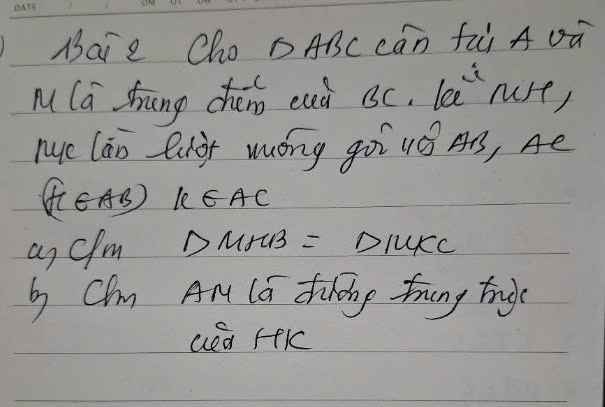 DATE
Bài 2 Cho Δ ABC cân tại A và
M là trung điểm của BC. kẻ MH,
MK lần lượt vuông gói với AB, AC
(H ∈ AB) K ∈ AC
a, C/m Δ MHB = Δ MKC
b, Chm AM là đường trung trực
của HK